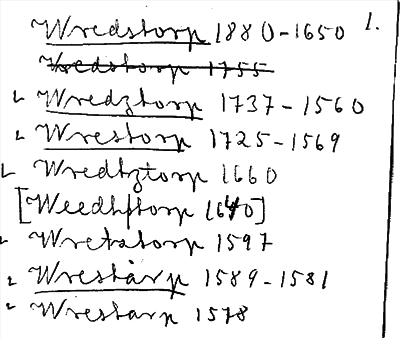 Wredstorp 1880-1650 1.
Wredstorp 1755
Wredztorp 1737-1560
Wrestorp 1725-1569
Wredtztorp 1660
[Weedhftorp 1640]
Wretstorp 1597
Wrestårp 1589-1581
Wrestarp 1578